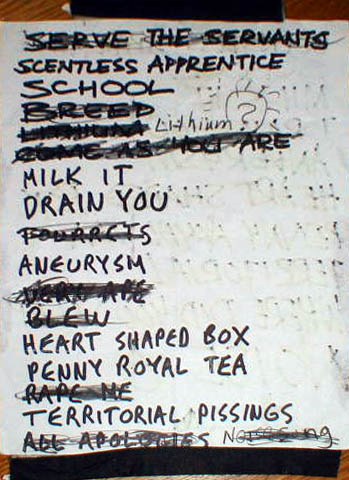 SERVE THE SERVANTS
SCENTLESS APPRENTICE
SCHOOL
BREED
LITHIUM Lithium ?
COME AS YOU ARE
MILK IT
DRAIN YOU
ANEURYSM
VERY APE
BLEW
HEART SHAPED BOX
PENNY ROYAL TEA
RAPE ME
TERRITORIAL PISSINGS
ALL APOLOGIES